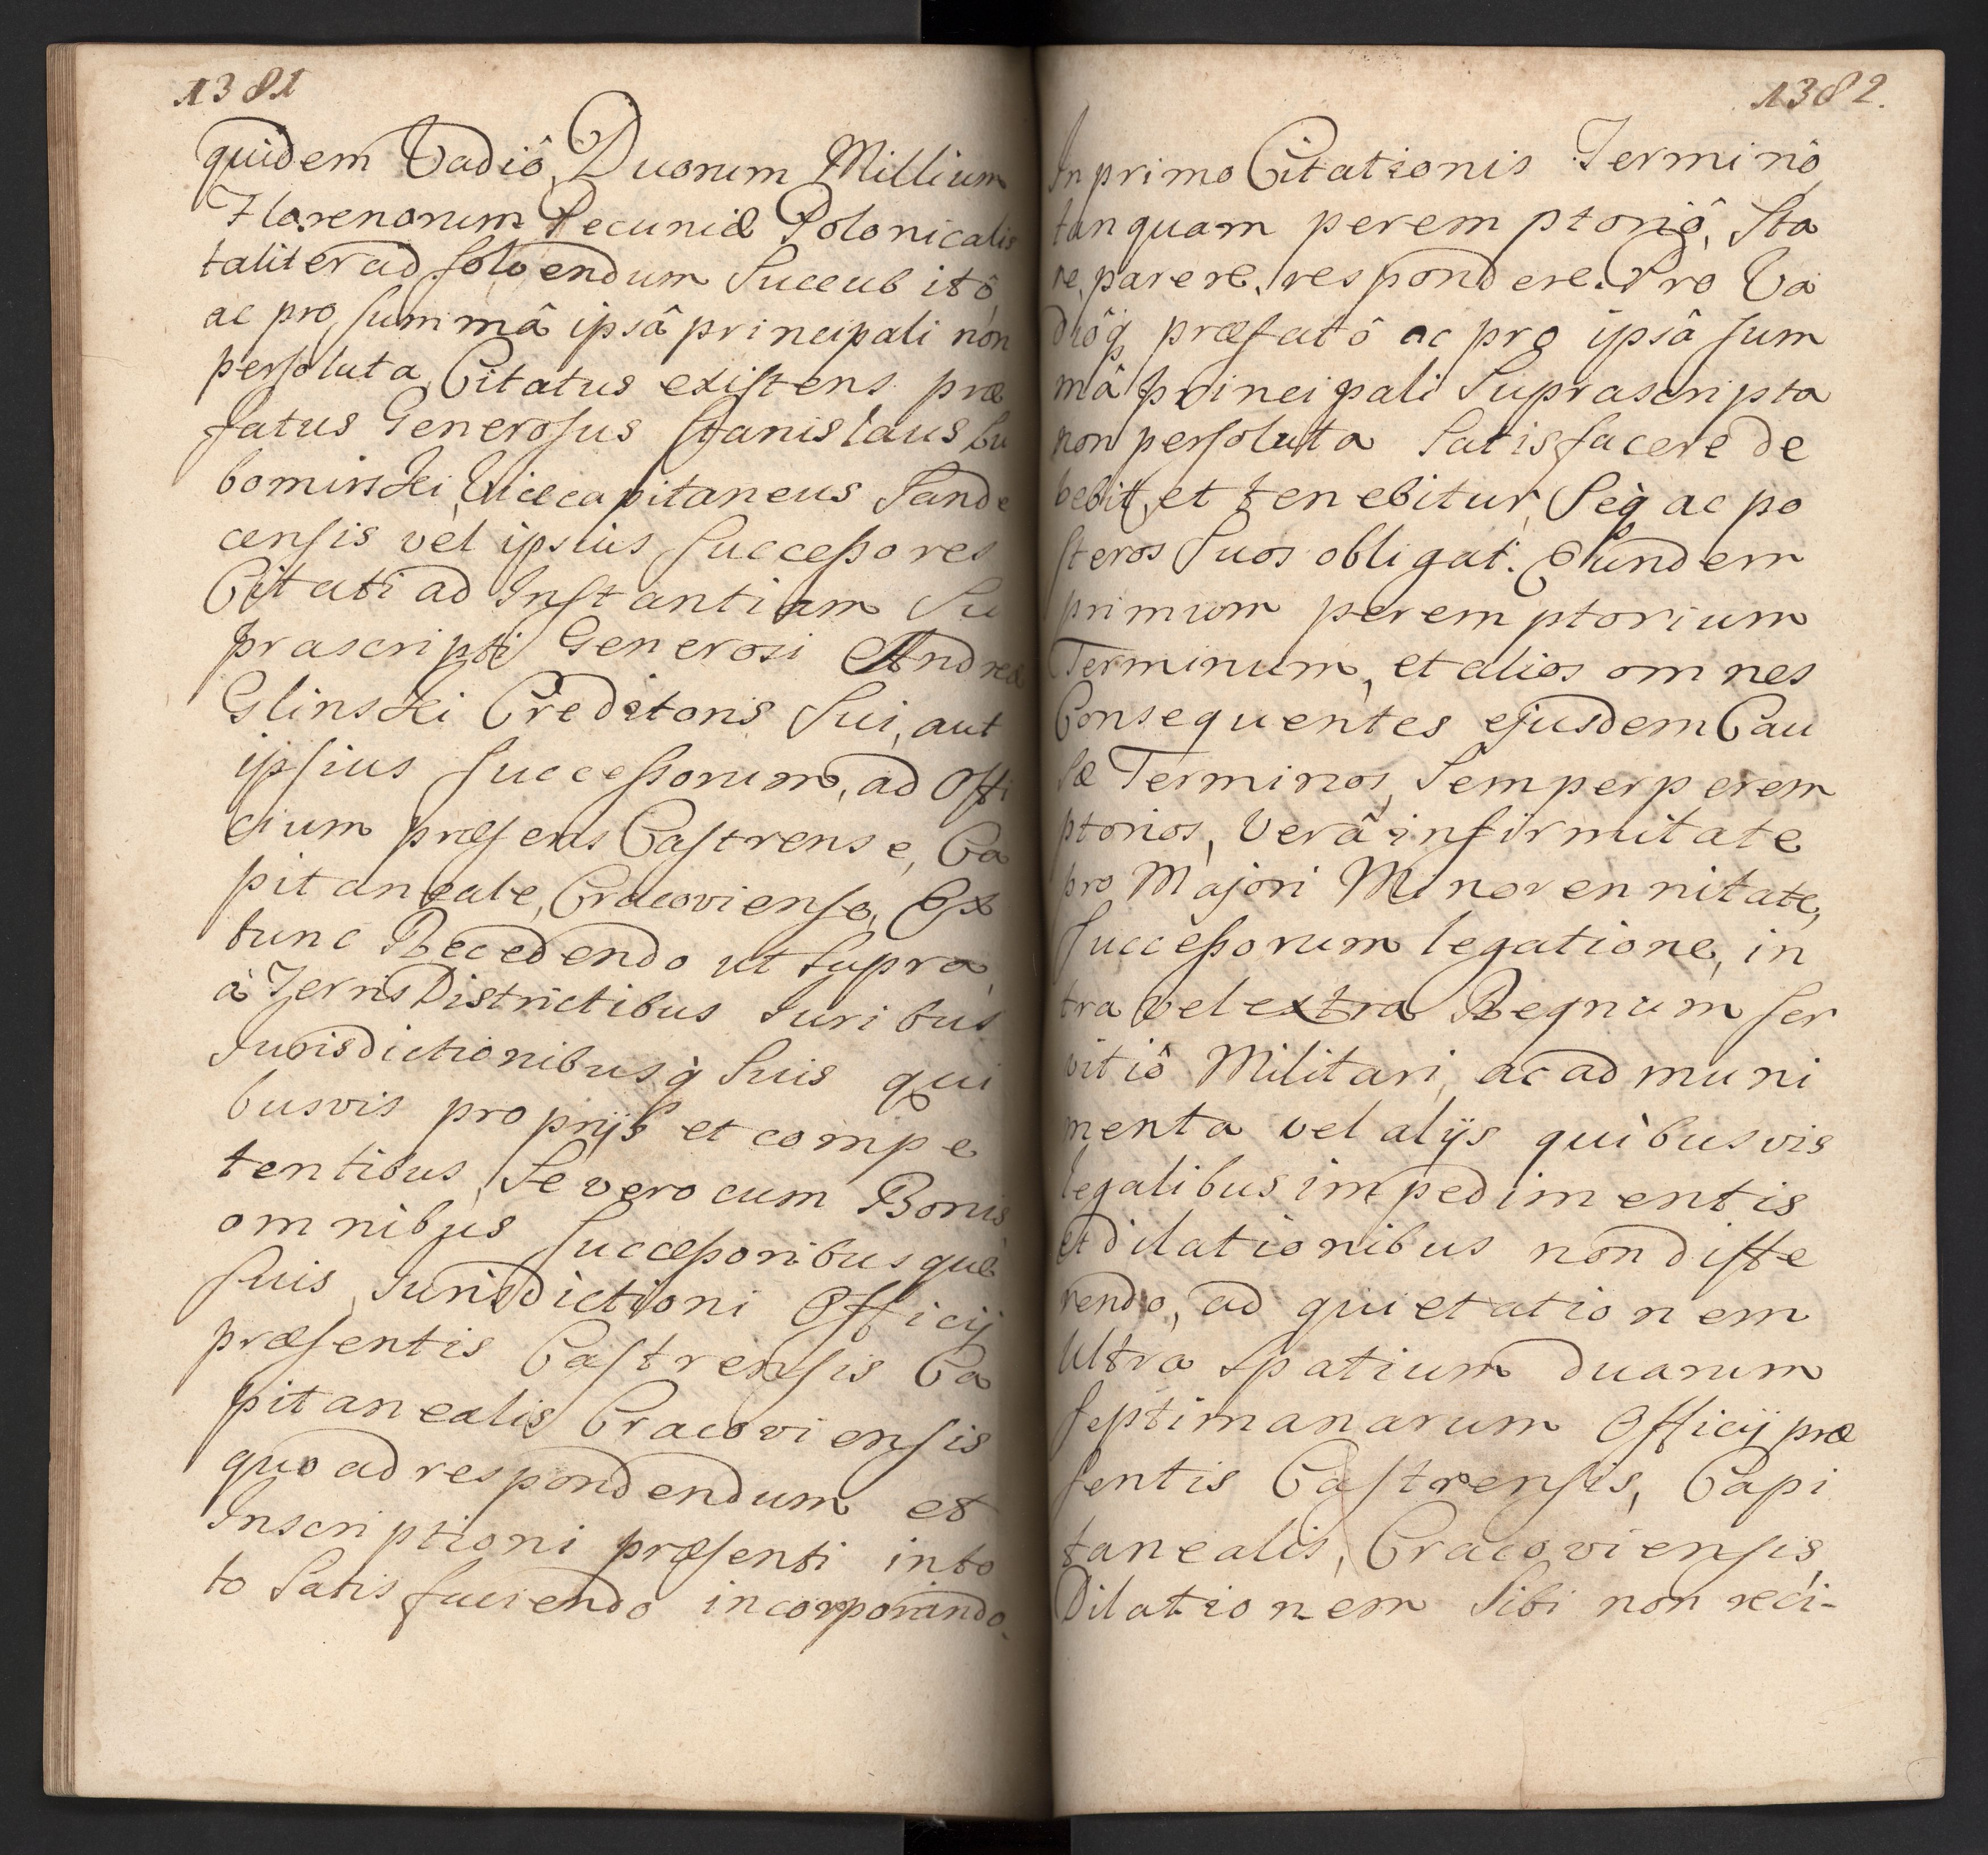 1381
quidem Vadiô, Duorum Millium
Florenorum Pecuniæ Polonicalis
taliter ad solvendum Succubitô,
ac pro summâ ipsâ principali non
persoluta, Citatus existens præ
fatus Generosus Stanislaus Lu
bomirski, Vicecapitaneus Sande
censis vel ipsius Successores
Citati ad Instantiam Su
prascripti Generosi Andreæ
Glinski Creditoris Sui, aut
ipsius Successorum, ad Offi
cium præsens Castrense, Ca
pitaneale, Cracoviense, Ex
tunc Recedendo ut Supra,
à Terris Districtibus Juribus
Jurisdictionibusq̀ Suis qui
busvis proprijs et compe
tentibus, Se vero cum Bonis
omnibus Successoribusquè
suis, Jurisdictioni Officij
præsentis Castrensis Ca
pitanealis Cracoviensis
quo ad respondendum et
Inscriptioni præsenti in to
to Satisfaciendo incorporando
1382.
In primo Citationis Terminô
tanquam peremptoriô, Sta
re, parere, respondere. Pro Va
diôq præfatô ac pro ipsâ sum
mâ principali Suprascripta
non persoluta Satisfacere de
bebit, et tenebitur, Seq̀ ac po
steros Suos obligat. Eundem
primum peremptorium
Terminum, et alios omnes
Consequentes ejusdem Cau
sæ Terminos, Semper perem
ptorios, Verâ infirmitate
pro Majori Minorennitate,
Successorum legatione, in
tra vel extra Regnum ser
vitiô Militari, ac ad muni
menta vel alijs quibusvis
legalibus impedimentis
et dilationibus non diffe
rendo, ad quietationem
Ultra Spatium duarum
septimanarum Officij præ
sentis Castrensis, Capi
tanealis, Cracoviensis,
Dilationem Sibi non reci-